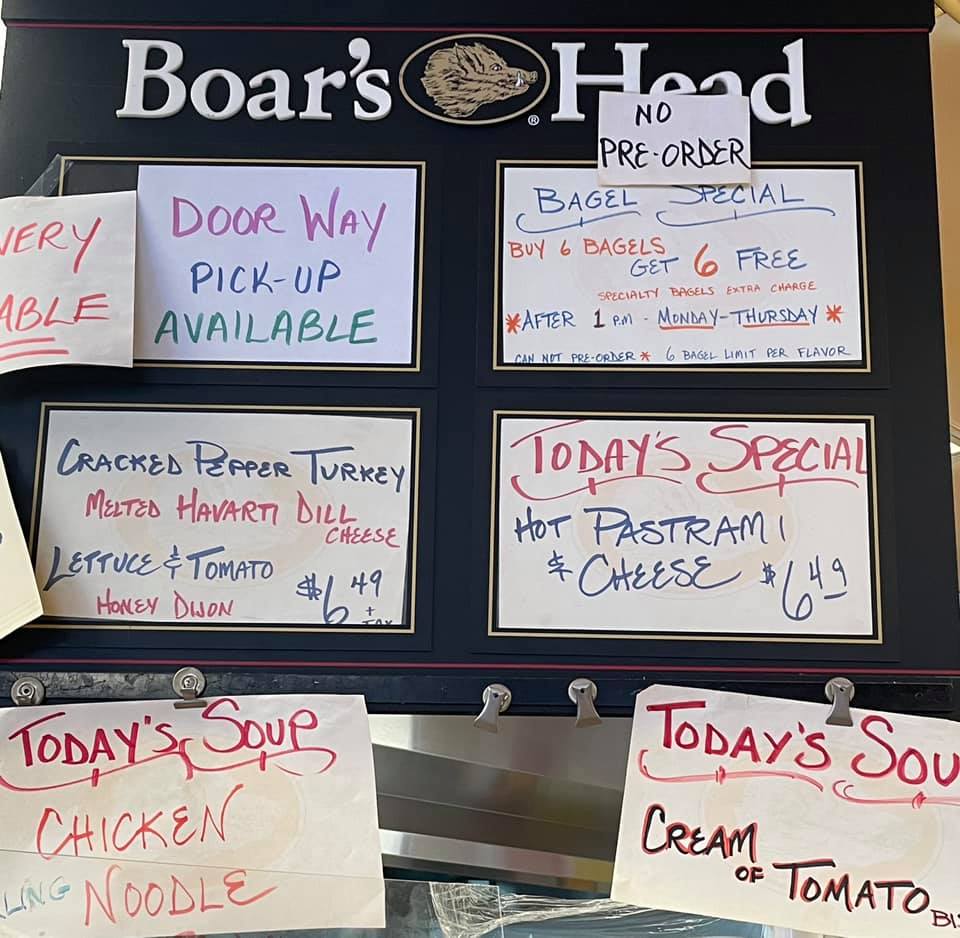 Boar's Head
®
NO
PRE-ORDER
VERY
ABLE
DOOR WAY
PICK-UP
AVAILABLE
BAGEL SPECIAL
BUY 6 BAGELS
GET 6 FREE
SPECIALTY BAGELS EXTRA CHARGE
*AFTER 1 P.M - MONDAY-THURSDAY *
CAN NOT PRE-ORDER * 6 BAGEL LIMIT PER FLAVOR
CRACKED PEPPER TURKEY
MELTED HAVARTI DILL
CHEESE
LETTUCE & TOMATO
HONEY DIJON
$6 49
+
TAX
TODAY'S SPECIAL
HOT PASTRAMI
& CHEESE $6 49
TODAY'S SOUP
CHICKEN
LING NOODLE
TODAY'S SOU
CREAM
OF TOMATO
BIS